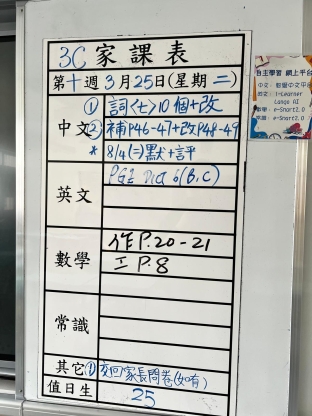 3C 家課表
第十週3月25日(星期二)
中文
① 詞〈七〉10個+改
② 補P46-47+改P48-49
* 8/4(二)默+評
英文
數學
作P.20-21
P.8
常識
其它
① 交回家長問卷(如有)
值日生
25
自主學習 網上平台
中文:
英文: i-Learner
Lango AI
數學: e-Smart2.0
常識: e-Smart2.0